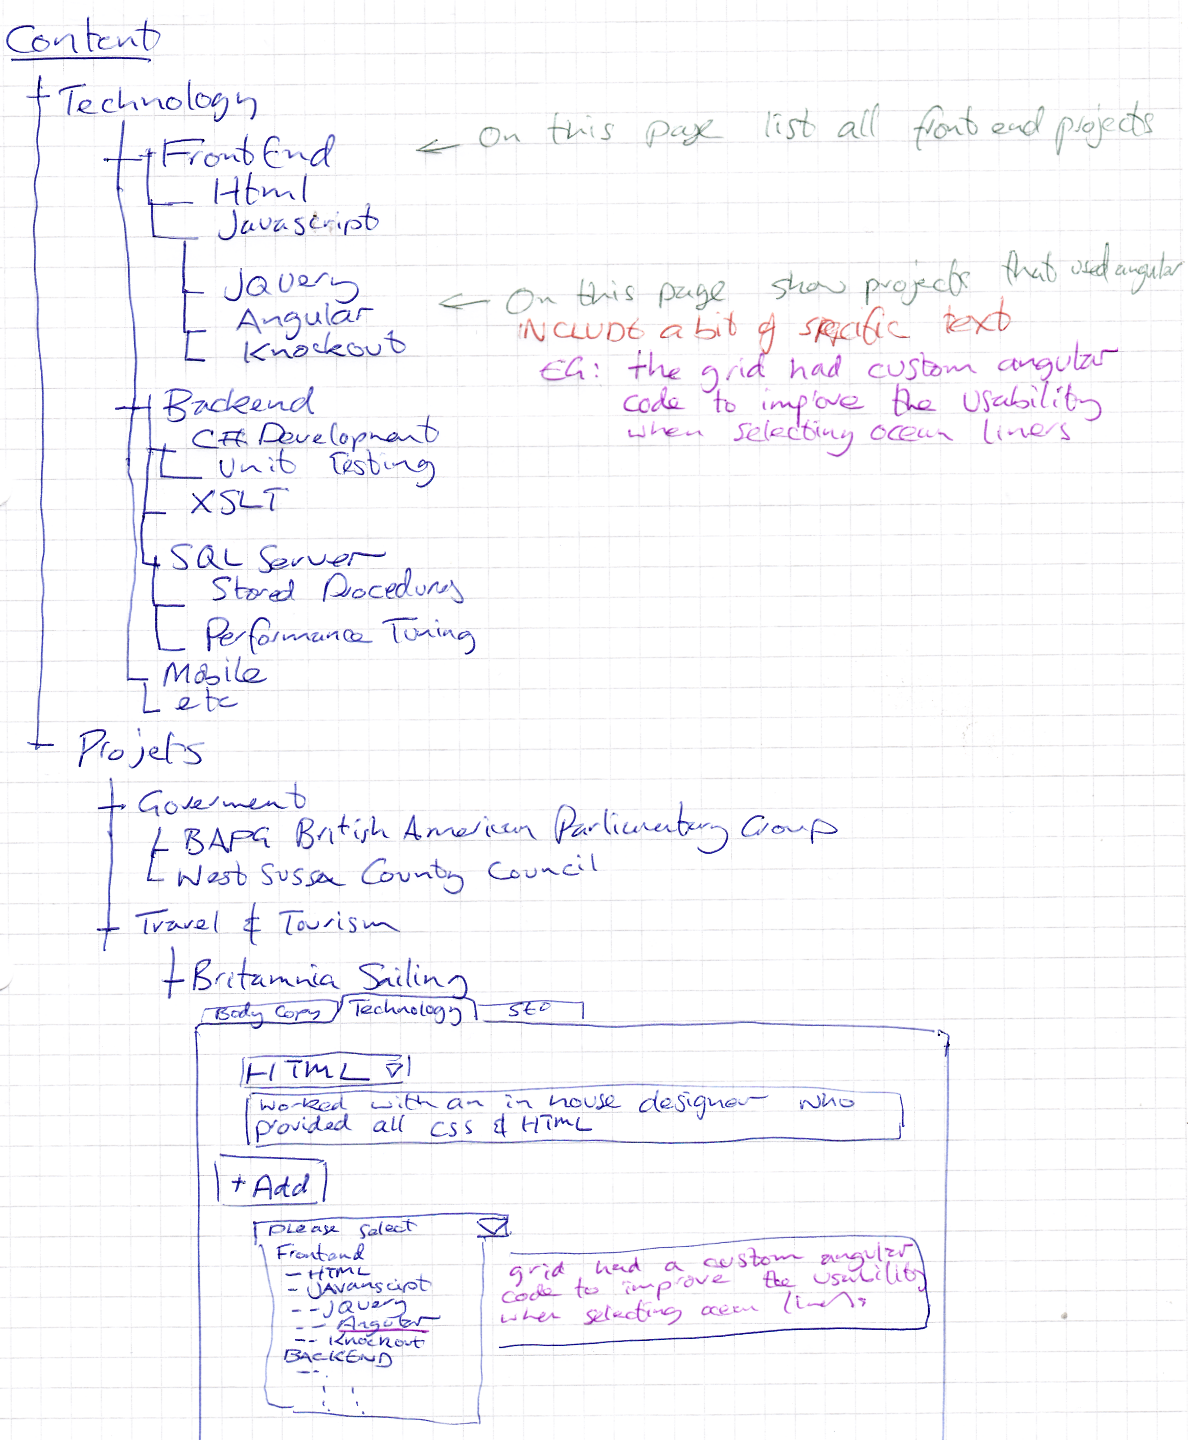 Content
Technology
Front End
← On this page list all front end projects
Html
Javascript
JQuery
Angular
← On this page show projects that used angular
INCLUDE a bit of specific text
Knockout
EG: the grid had custom angular
code to improve the usability
when selecting ocean liners
Backend
C# Development
Unit Testing
XSLT
SQL Server
Stored Procedures
Performance Tuning
Mobile
etc
Projets
Goverment
BAPG British American Parlimentary Group
West Sussex County Council
Travel & Tourism
Britannia Sailing
Body Copy
Technology
SEO
HTML
worked with an in house designer who
provided all CSS & HTML
+ Add
Please select
Frontend
- HTML
- JAVAnscript
-- JQuery
-- Angular
-- Knockout
BACKEND
--
grid had a custom angular
code to improve the usability
when selecting ocean liners